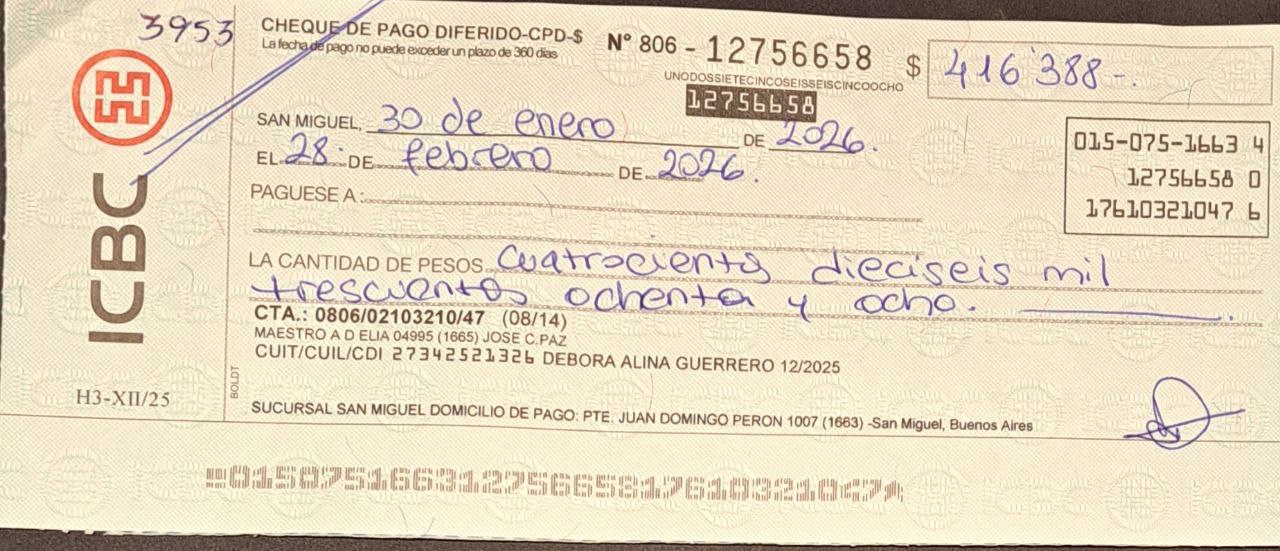 3953
CHEQUE DE PAGO DIFERIDO-CPD-$
La fecha de pago no puede exceder un plazo de 360 días
N° 806 - 12756658
UNODOSSIETECINCOSEISSEISCINCOOCHO
12756658
$ 416'388-.
ICBC
SAN MIGUEL, 30 de enero DE 2026.
EL 28 DE febrero DE 2026.
PAGUESE A :
015-075-1663 4
12756658 0
17610321047 6
LA CANTIDAD DE PESOS cuatrocientos dieciseis mil
trescuentos ochenta y ocho.
CTA.: 0806/02103210/47 (08/14)
MAESTRO A D ELIA 04995 (1665) JOSE C.PAZ
CUIT/CUIL/CDI 27342521326 DEBORA ALINA GUERRERO 12/2025
BOLDT
H3-XII/25
SUCURSAL SAN MIGUEL DOMICILIO DE PAGO: PTE. JUAN DOMINGO PERON 1007 (1663) -San Miguel, Buenos Aires
01507516631275665817610321047